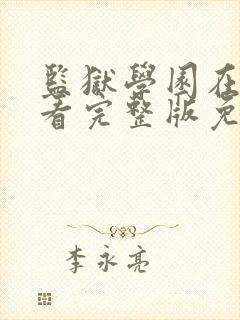 監獄學園在
看完整版免
李永亮